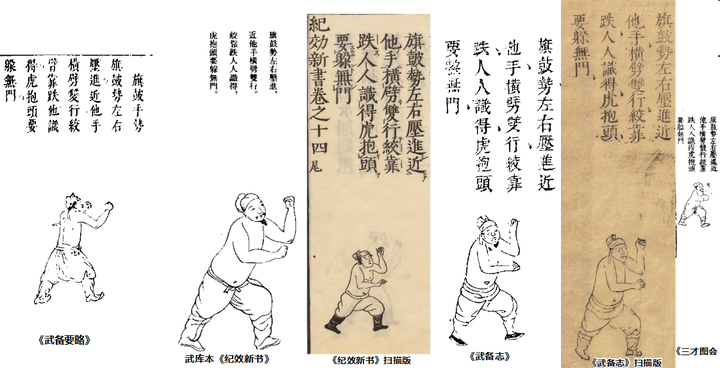 旗鼓手勢
旗鼓勢左右
壓進近他手
橫劈雙行絞
靠跌他識
得虎抱頭要
躲無門
《武备要略》
旗鼓勢左右壓進,
近他手橫劈雙行。
絞靠跌人人識得,
虎抱頭要躲無門。
武库本《纪效新书》
旗鼓勢左右壓進近
他手橫劈雙行絞靠
跌人人識得虎抱頭
要躲無門
紀効新書卷之十四 尾
《纪效新书》扫描版
旗鼓勢左右壓進近
他手橫劈雙行絞靠
跌人人識得虎抱頭
要躲無門
《武备志》
旗鼓勢左右壓進近
他手橫劈雙行絞靠
跌人人識得虎抱頭
要躲無門
《武备志》扫描版
旗鼓勢左右壓進近
他手橫劈雙行絞靠
跌人人識得虎抱頭
要躲無門
《三才图会